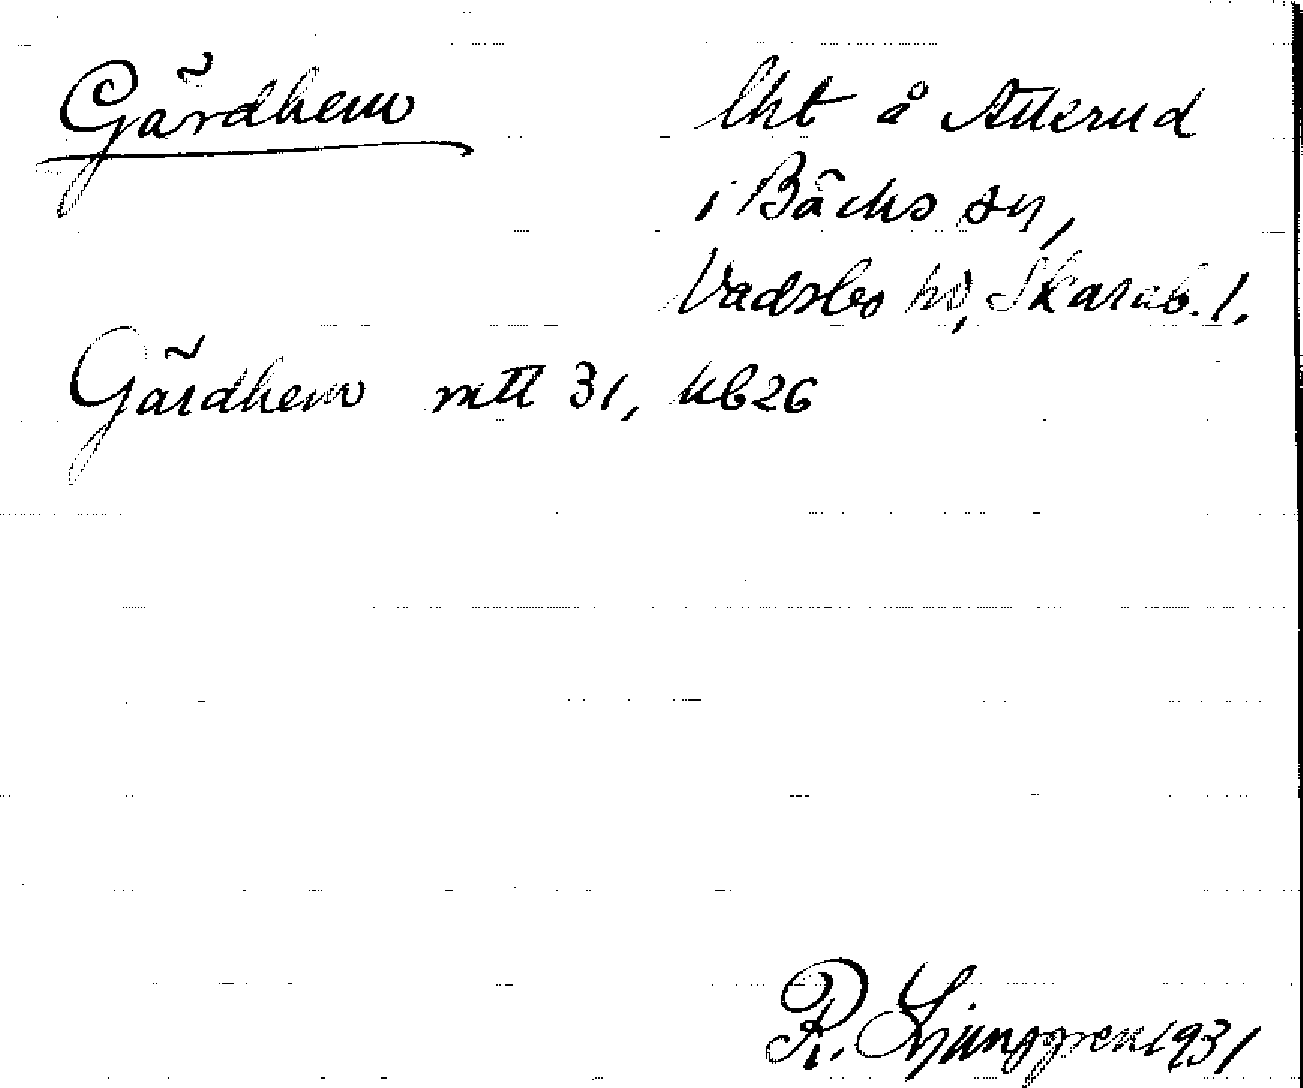 Gärdhem
lht å Atterud
i Bäcks sn,
Vadsbo hd, Skarab. l.
Gärdhem mtl 31, kb 26
R. Ljunggren 1931